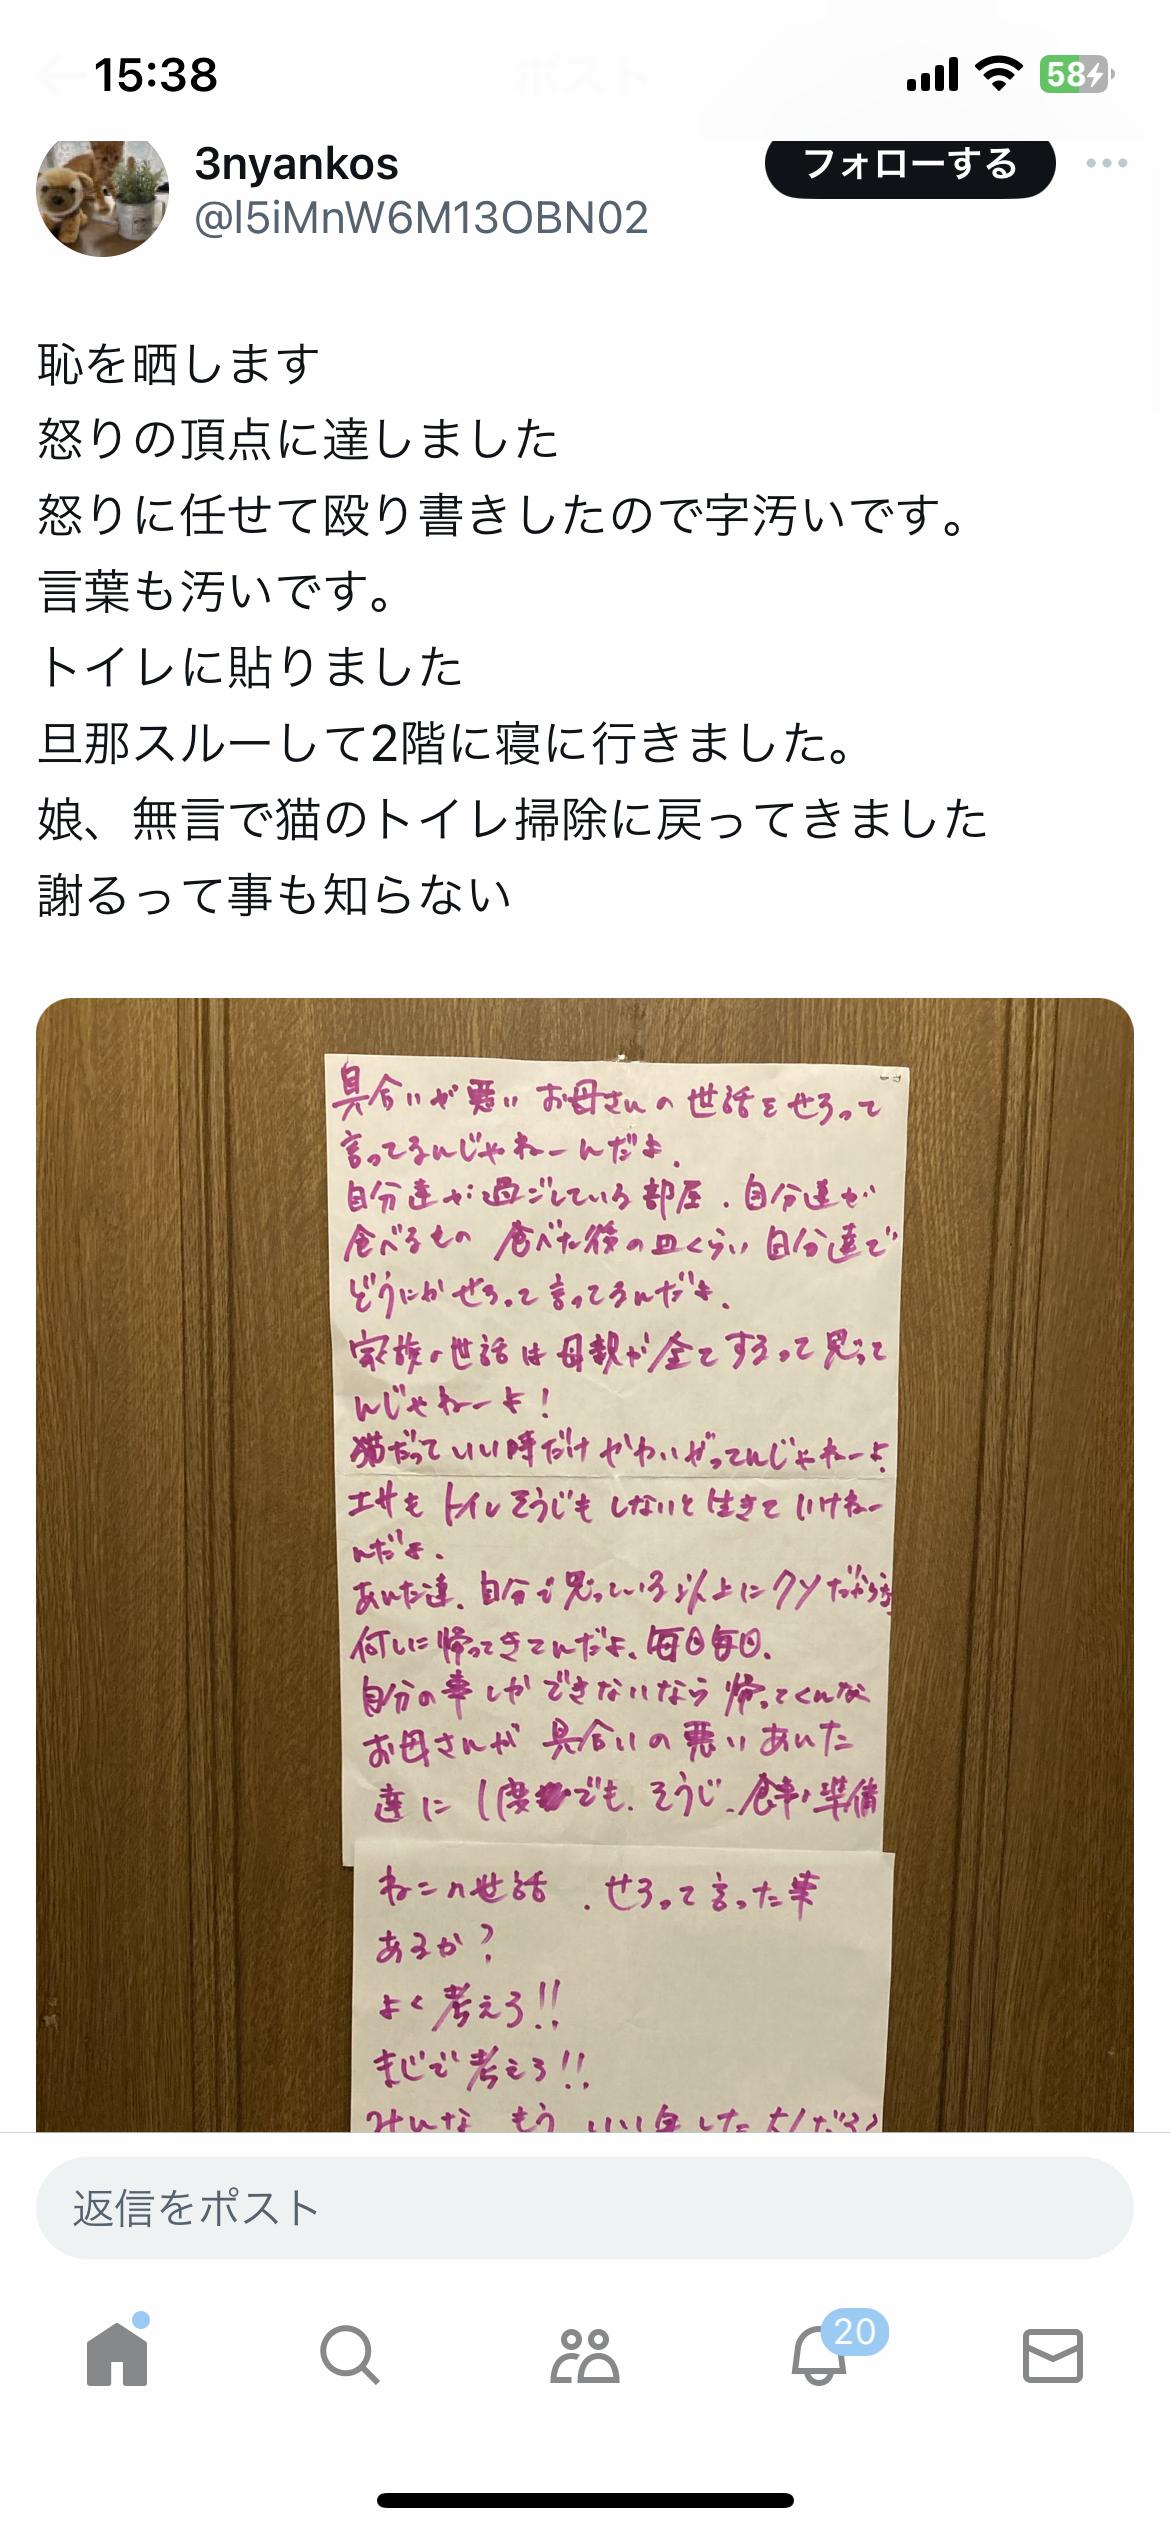 15:38
58
3nyankos
フォローする
@l5iMnW6M13OBN02
恥を晒します
怒りの頂点に達しました
怒りに任せて殴り書きしたので字汚いです。
言葉も汚いです。
トイレに貼りました
旦那スルーして2階に寝に行きました。
娘、無言で猫のトイレ掃除に戻ってきました
謝るって事も知らない
具合いが悪いお母さんの世話をせろって
言ってるんじゃねーんだよ.
自分達が過ごしている部屋.自分達が
食べるもの 食べた後の皿くらい自分達で
どうにかせろって言ってるんだよ.
家族の世話は母親が全てするって思って
んじゃねーよ!
猫だっていい時だけかわいがってんじゃねーよ.
エサもトイレそうじもしないと生きていけねー
んだよ.
あんた達.自分で思っている以上にクソだからな
何しに帰ってきてんだよ.毎日毎日.
自分の事しかできないなら帰ってくんな
お母さんが具合いの悪いあんた
達に1度でも.そうじ.食事の準備
ねこの世話.せろって言った事
あるか?
よく考えろ!!
まじで考えろ!!
みんなもういい年した大人だろ
返信をポスト
20